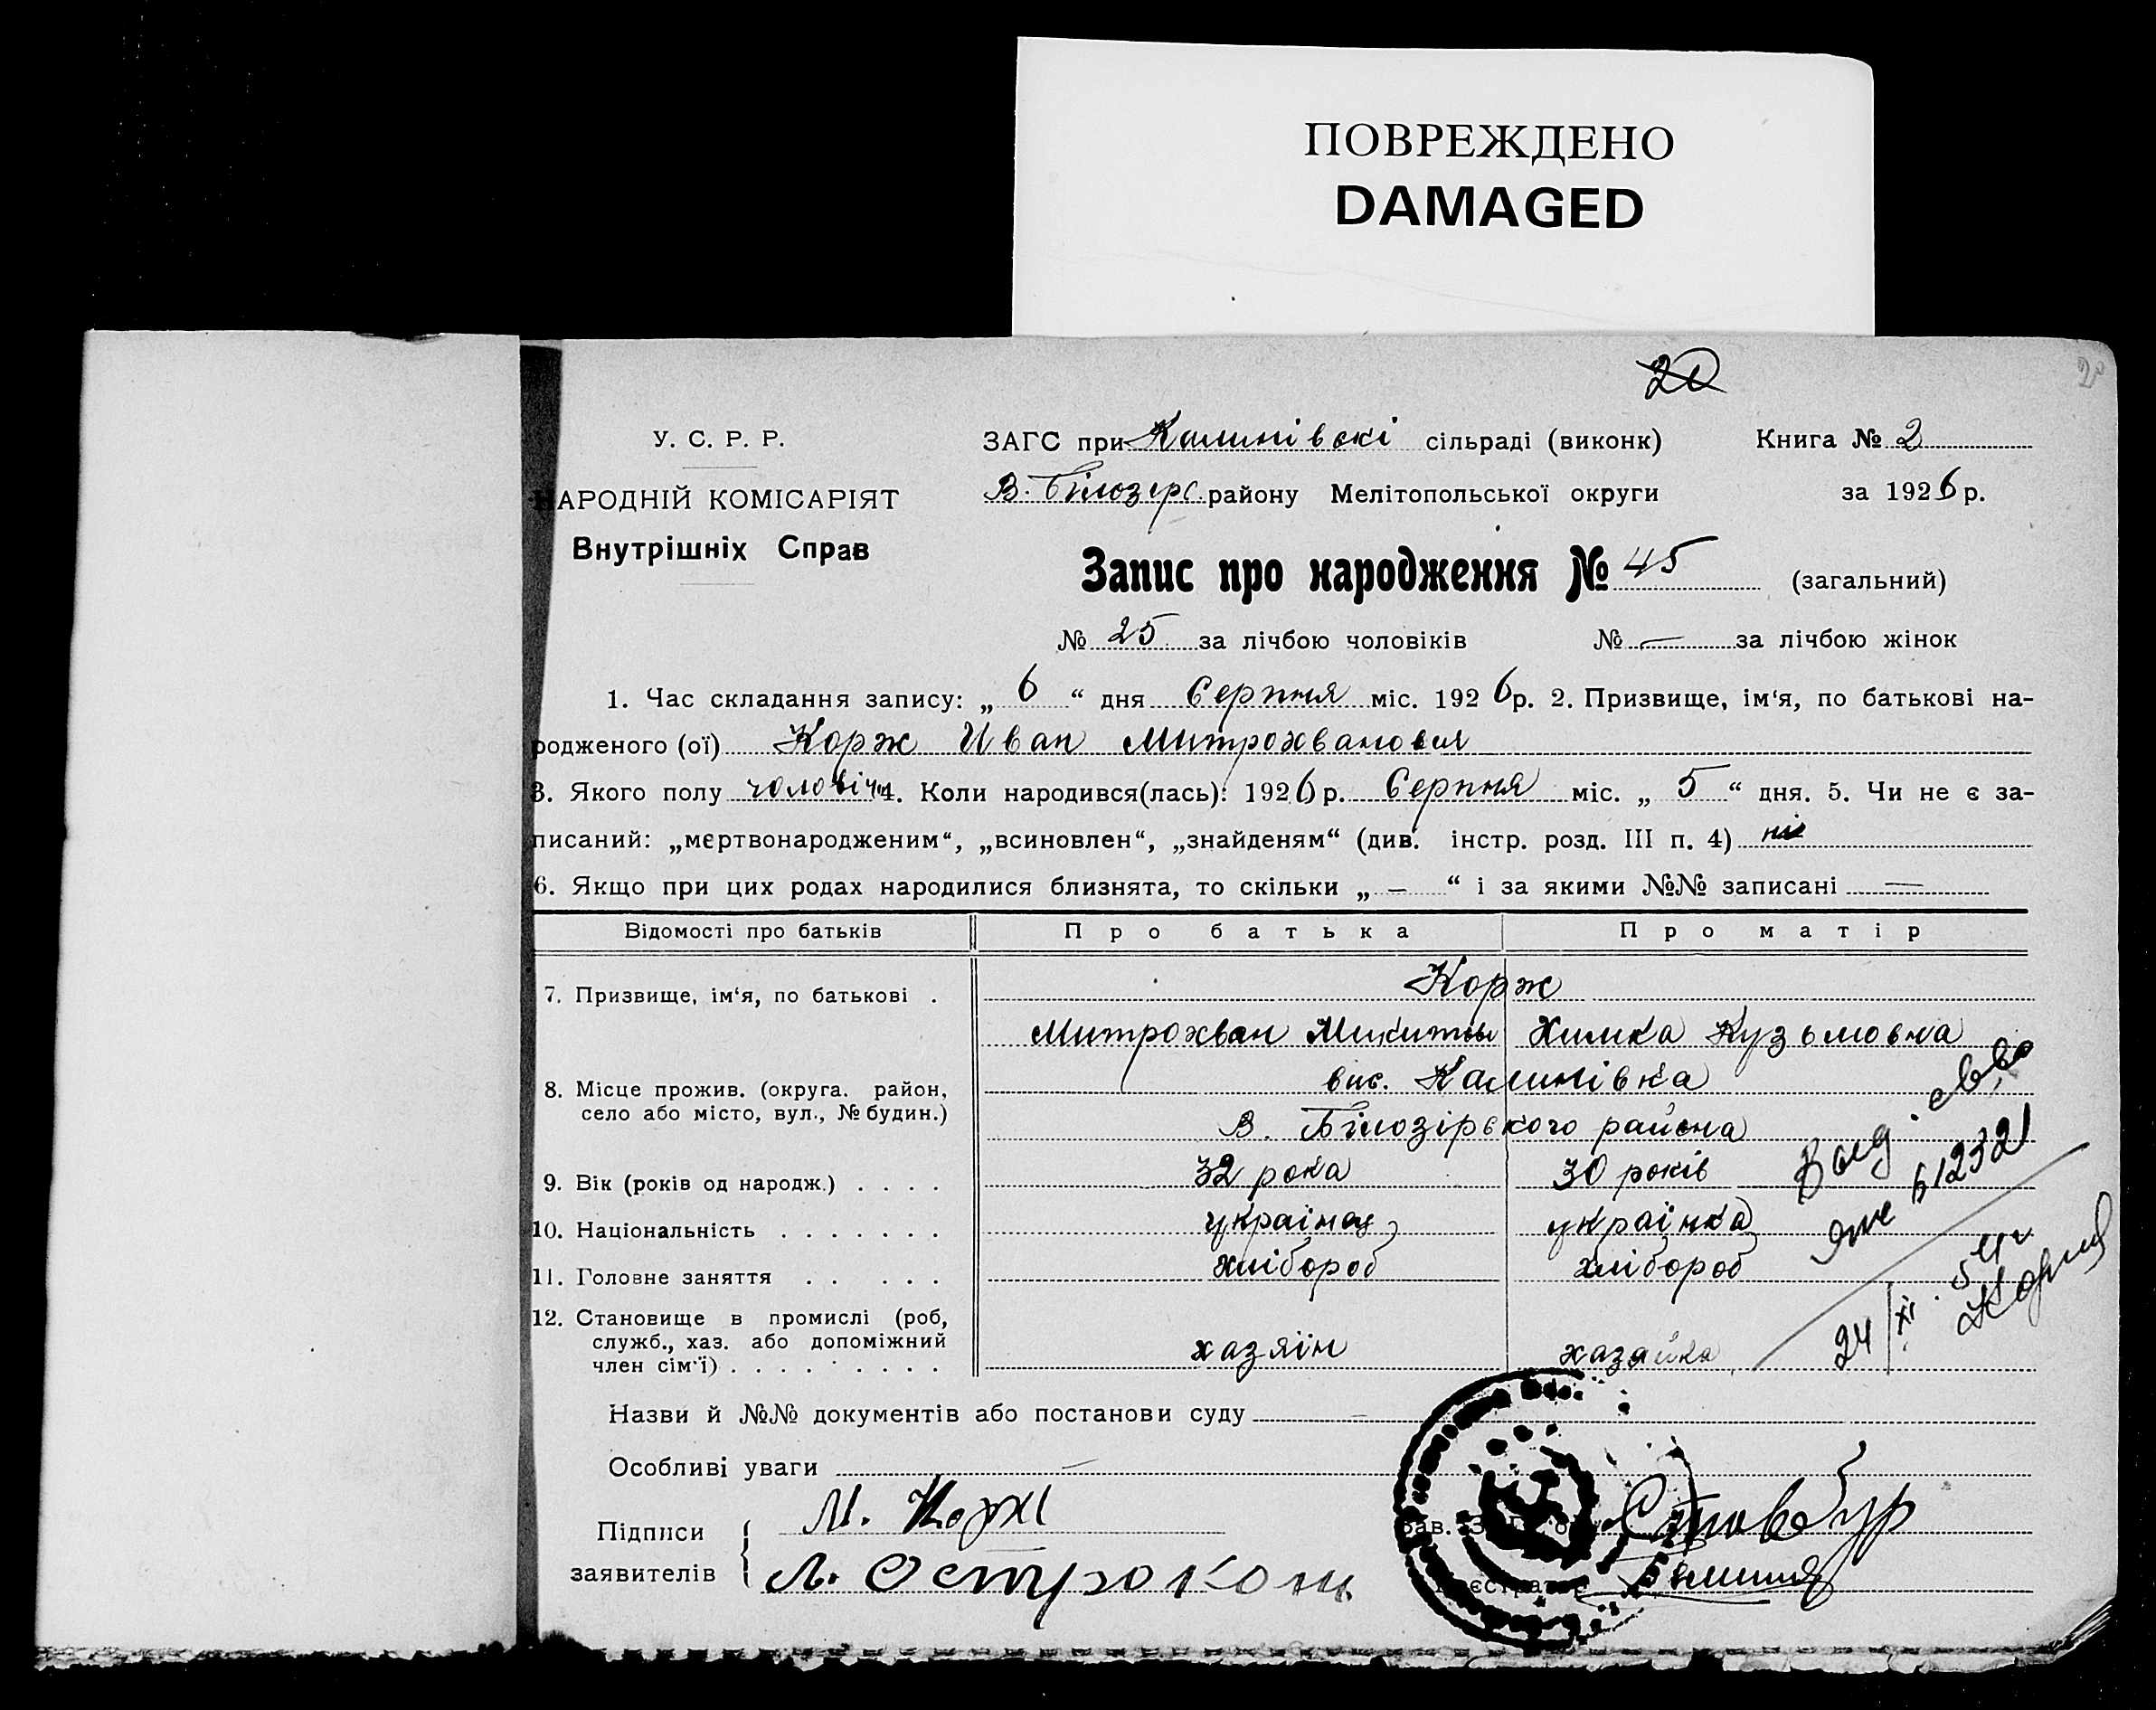 ПОВРЕЖДЕНО
DAMAGED
20
У. С. Р. Р.
НАРОДНІЙ КОМІСАРІЯТ
Внутрішніх Справ
ЗАГС при Калинівскі сільраді (виконк) Книга № 2
В. Білозерс. району Мелітопольської округи за 1926 р.
Запис про народження № 45 (загальний)
№ 25 за лічбою чоловіків № — за лічбою жінок
1. Час складання запису: „ 6 “ дня Серпня міс. 1926 р. 2. Призвище, ім‘я, по батькові на-
родженого (ої) Корж Иван Митрохванович
3. Якого полу чоловіч. 4. Коли народився(лась): 1926 р. Серпня міс. „ 5 “ дня. 5. Чи не є за-
писаний: „мєртвонародженим“, „всиновлен“, „знайденям“ (див. інстр. розд. III п. 4) ні
6. Якщо при цих родах народилися близнята, то скільки „ — “ і за якими №№ записані —
Відомості про батьків Про батька Про матір
7. Призвище, ім‘я, по батькові . Корж
Митрохван Микиты Химка Кузьмовна
8. Місце прожив. (округа. район, село або місто, вул., № будин.) вис. Калинівка
В. Білозірского района
9. Вік (років од народж.) . . . . 32 рока 30 років
10. Національність . . . . . . . українец українка
11. Головне заняття . . . . . хлібороб хлібороб
12. Становище в промислі (роб,
служб., хаз. або допоміжний
член сім‘ї) . . . . . . . . . хазяїн хазайка
Выд. св-во
612321
24/XI. 54г
Назви й №№ документів або постанови суду —
Особливі уваги —
Підписи
заявителів
М. Корж
Л. Острокон
Зав. Стовбур
Реєстратор